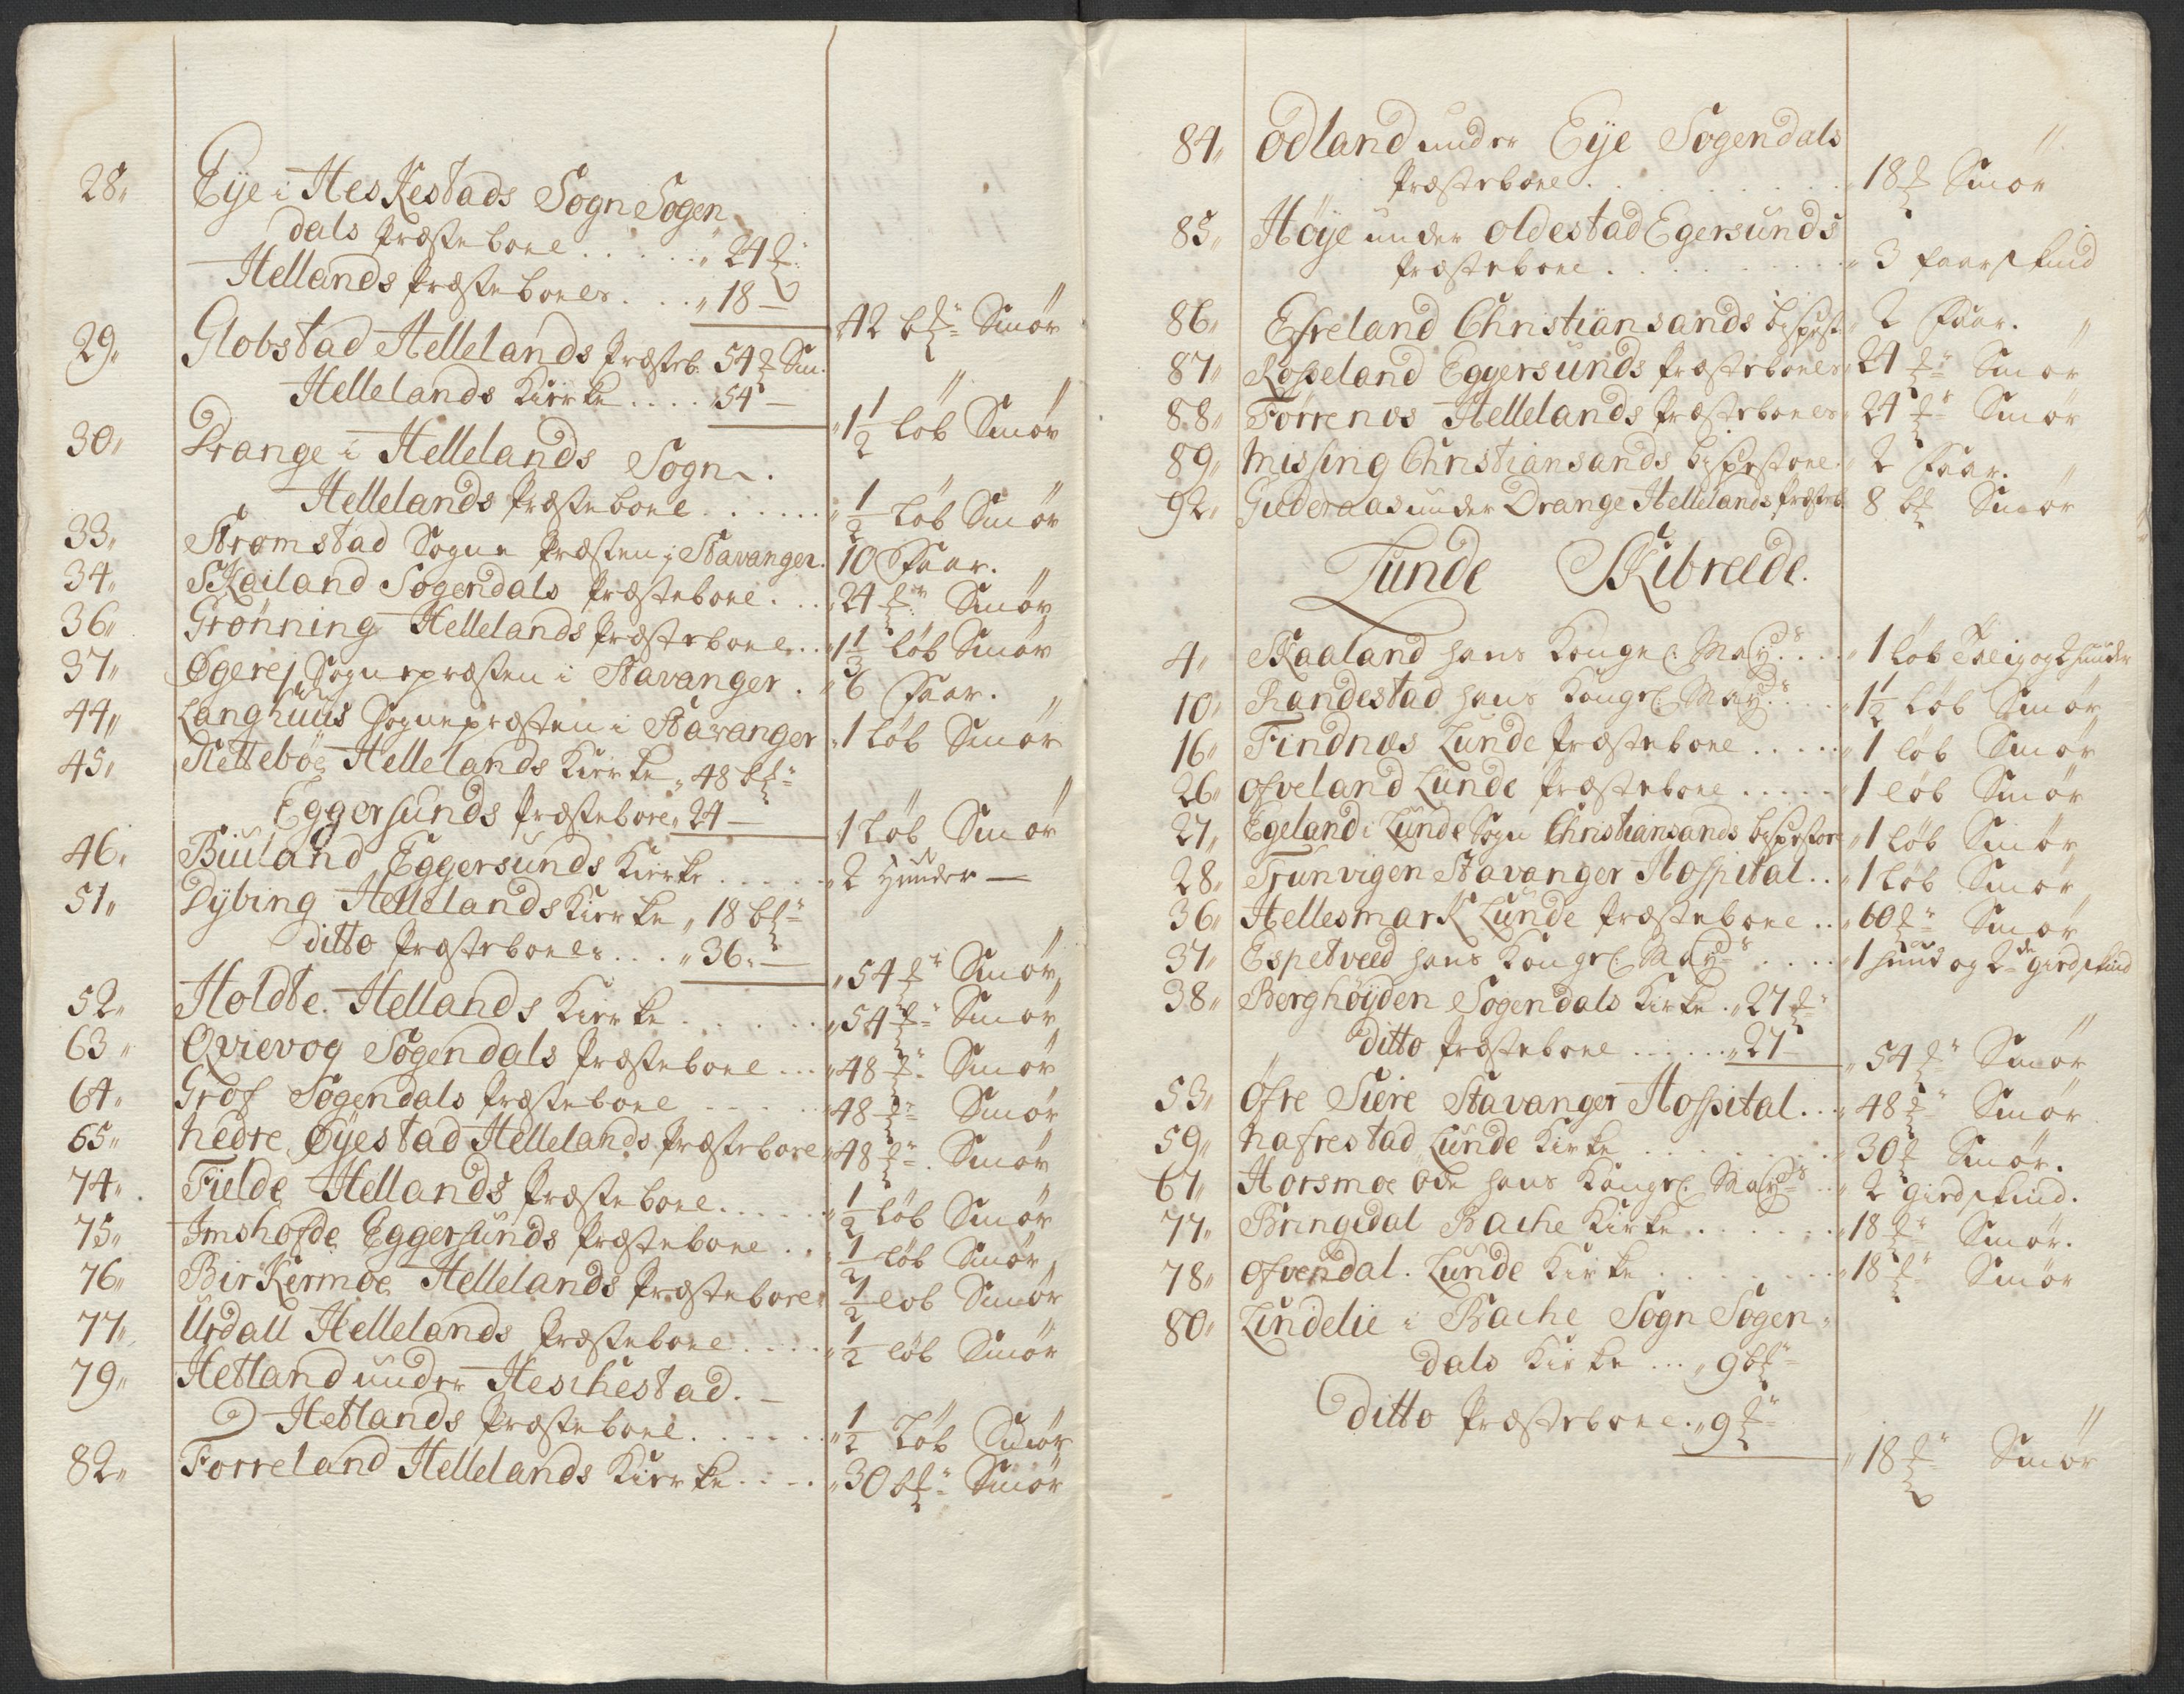 28„ Eÿe i HesKestads Sogn Sogen
dals Præstebole . . . . . „ 24 ℔
Hellands Præsteboles . . . „ 18 —
„ 42 b℔ Smør
29„ Globstad Hellelands Præsteb. 54 ℔ Sm.
Hellelands Kirke . . . . „ 54 —
„ 1½ løb Smør
30„ Drange i Hellelands Sogn.
Hellelands Præstebole . . . . . . „ ½ løb Smør
33„ Strømstad Sogne Præsten i Stavanger. 10 Faar.
34„ SKailand Sogendals Præstebole . . . „ 24 ℔ Smør
36„ Grønning Hellelands Præstebole . . . „ 1⅓ løb Smør
37„ Øgerej Sognepræsten i Stavanger . „ 6 Faar.
44„ Langhuus Sognepræsten i Stavanger „ 1 løb Smør
45„ Nettebøe Hellelands Kirke „ 48 b℔
Eggersunds Præstebole „ 24 —
„ 1 løb Smør
46„ Biuland Eggersunds Kirke . . . . . „ 2 Huuder —
51„ Dÿbing Hellelands Kirke „ 18 b℔
ditto Præsteboles . . . „ 36„ —
„ 54 ℔ Smør
52„ Holdte Hellands Kirke . . . . . . „ 54 ℔ Smør
63„ Qvievog Sogendals Præstebole . . . „ 48 ℔ Smør
64„ Grøf Sogendals Præstebole . . . . . „ 48 ℔ Smør
65„ Nedre Øÿestad Hellelands Præstebole „ 48 ℔ Smør
74„ Fielde Hellands Præstebole . . . . . „ ½ løb Smør
75„ Imshofde Eggersunds Præstebole . . „ ½ løb Smør
76„ BirKermoe Hellelands Præstebole „ ½ løb Smør
77„ Urdall Hellelands Præstebole . . . . „ ½ løb Smør
79„ Hetland under Heschestad. —
Hetlands Præstebole . . . . . . „ ½ løb Smør
82„ Forreland Hellelands Kirke . . . . „ 30 b℔ Smør
84„ Odland under Eÿe Sogendals
Præstebole . . . . . . . . „ 18 ℔ Smør
85„ Høÿe under Oldestad Egersunds
Præstebole . . . . . . . . „ 3 Faarskind
86„ Efreland Christiansands bispest. „ 2 Faar.
87„ Rosseland Eggersunds Præsteboles „ 24 ℔ Smør
88„ Førrenæs Hellelands Præsteboles „ 24 ℔ Smør
89„ Missing Christiansands bispestole „ 2 Faar.
92„ Guderaas under Drange Hellelands Præsteb. 8 b℔ Smør
Lunde SKibreede.
4„ SKaaland Hans Kongel: Maÿ.ˢ . . . . „ 1 løb Tælg og 2 Huuder
10„ Randestad Hans Kongel: Maÿᵈˢ . . . „ 1½ løb Smør
16„ Findnæs Lunde Præstebole . . . . . „ 1 løb Smør
26„ Ofveland Lunde Præstebole . . . . . „ 1 løb Smør
27„ Egeland i Lunde Sogn Christiansands bispestole „ 1 løb Smør
28„ Trunvigen Stavanger Hospital . . „ 1 løb Smør
36„ HellesmarK Lunde Præstebole . . „ 60 ℔ Smør
37„ Espetveed Hans Kongel: Maÿᵈˢ . . . . „ 1 Huud og 2 de giedskind
38„ Berghøÿden Sogendals Kirke . „ 27 ℔
ditto Præstebole . . . . . . „ 27 —
„ 54 ℔ Smør
53„ Øfre Siere Stavanger Hospital . . „ 48 ℔ Smør
59„ Nafrestad Lunde Kirke . . . . . . . „ 30 ℔ Smør.
67„ Horsmoe Øde Hans Kongel: Maÿᵈˢ . . „ 2 giedskind.
77„ Bringedal Bache Kirke . . . . . . „ 18 ℔ Smør.
78„ Ofvendal. Lunde Kirke . . . . . . . . „ 18 ℔ Smør
80„ Lindelie i Bache Sogn Sogen„
dals Kirke . . . „ 9 b℔
Ditto Præstebole . „ 9 ℔
„ 18 ℔ Smør